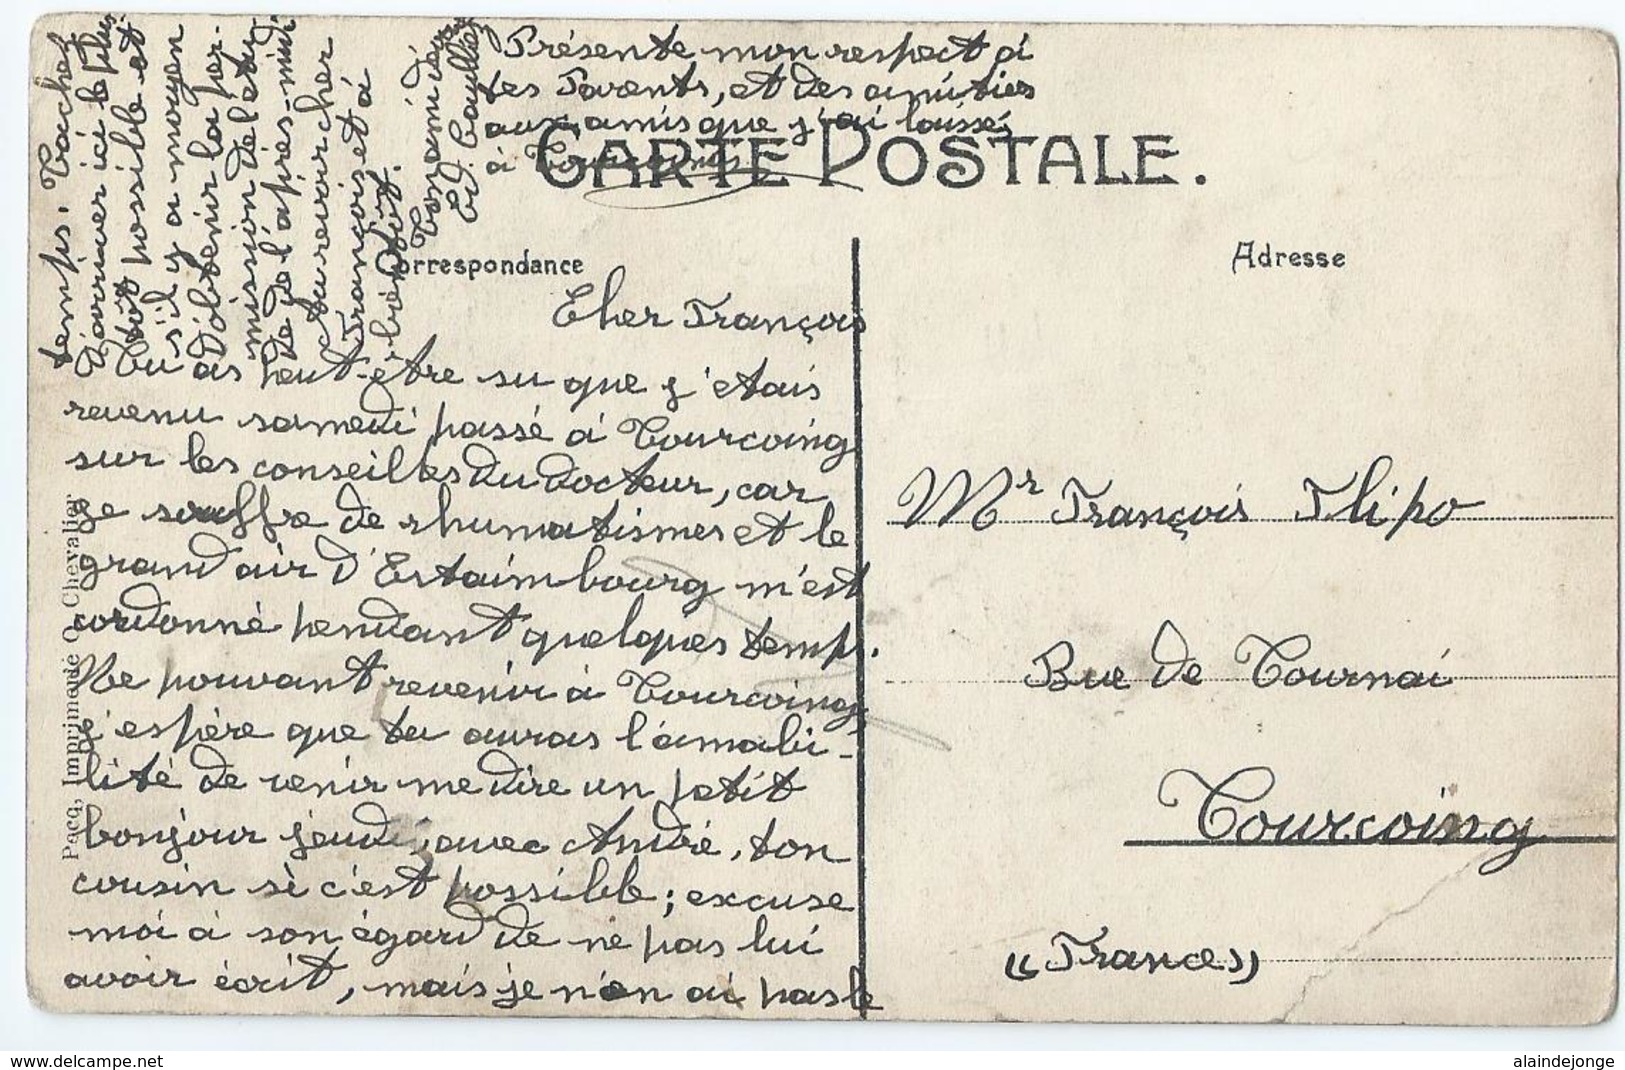 CARTE POSTALE.
Correspondance
Adresse
Cher François
Tu as peut-être su que j'étais
revenu samedi passé à Tourcoing
sur les conseilles du docteur, car
je souffre de rhumatismes et le
grand air d'Estaimbourg m'est
ordonné pendant quelques temps.
Ne pouvant revenir à Tourcoing,
j'espère que tu auras l'amabi-
lité de venir me dire un petit
bonjour jeudi, avec André, ton
cousin si c'est possible; excuse
moi à son égard de ne pas lui
avoir écrit, mais je n'en ai pas le
temps. Taches
d'arriver ici le plus
tôt possible et
s'il y a moyen
d'obtenir la per-
mission de l'étude
de l'après-midi
Au revoir cher
François et à
bientôt.
Ton ami dév.
Ed.
Présente mon respect à
tes Parents, et des amitiés
aux amis que j'ai laissés
à Tourcoing
Mr François Flipo
Rue de Tournai
Tourcoing
"(France)"
Pecq, Imprimerie O. Chevalier
www.delcampe.net
alaindejonge